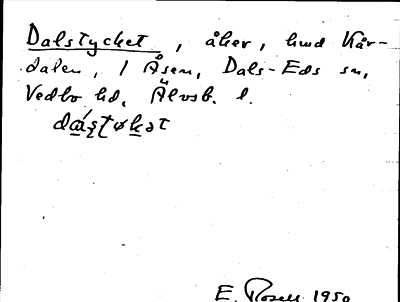 Dalstycket, åker, hmd Kår-
dalen, 1 Åsen, Dals-Eds sn,
Vedbo hd, Älvsb. l.
E. Rosell 1950